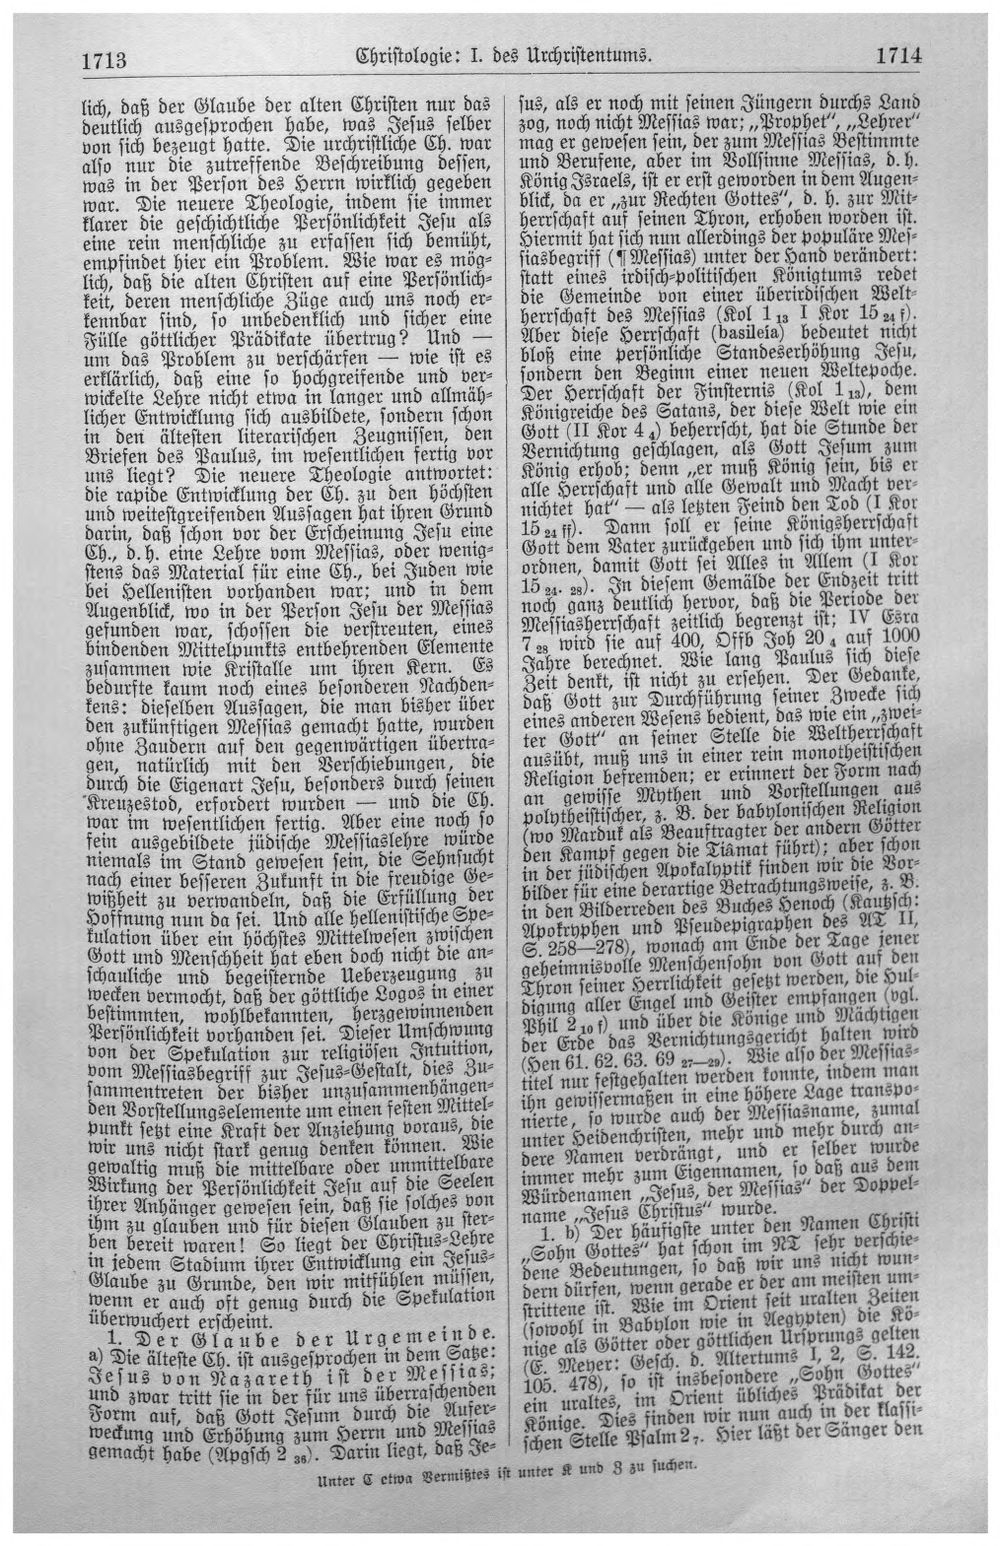 1713
Christologie: I. des Urchristentums.
1714
lich, daß der Glaube der alten Christen nur das
deutlich ausgesprochen habe, was Jesus selber
von sich bezeugt hatte. Die urchristliche Ch. war
also nur die zutreffende Beschreibung dessen,
was in der Person des Herrn wirklich gegeben
war. Die neuere Theologie, indem sie immer
klarer die geschichtliche Persönlichkeit Jesu als
eine rein menschliche zu erfassen sich bemüht,
empfindet hier ein Problem. Wie war es mög-
lich, daß die alten Christen auf eine Persönlich-
keit, deren menschliche Züge auch uns noch er-
kennbar sind, so unbedenklich und sicher eine
Fülle göttlicher Prädikate übertrug? Und —
um das Problem zu verschärfen — wie ist es
erklärlich, daß eine so hochgreifende und ver-
wickelte Lehre nicht etwa in langer und allmäh-
licher Entwicklung sich ausbildete, sondern schon
in den ältesten literarischen Zeugnissen, den
Briefen des Paulus, im wesentlichen fertig vor
uns liegt? Die neuere Theologie antwortet:
die rapide Entwicklung der Ch. zu den höchsten
und weitestgreifenden Aussagen hat ihren Grund
darin, daß schon vor der Erscheinung Jesu eine
Ch., d. h. eine Lehre vom Messias, oder wenig-
stens das Material für eine Ch., bei Juden wie
bei Hellenisten vorhanden war; und in dem
Augenblick, wo in der Person Jesu der Messias
gefunden war, schossen die verstreuten, eines
bindenden Mittelpunkts entbehrenden Elemente
zusammen wie Kristalle um ihren Kern. Es
bedurfte kaum noch eines besonderen Nachden-
kens: dieselben Aussagen, die man bisher über
den zukünftigen Messias gemacht hatte, wurden
ohne Zaudern auf den gegenwärtigen übertra-
gen, natürlich mit den Verschiebungen, die
durch die Eigenart Jesu, besonders durch seinen
Kreuzestod, erfordert wurden — und die Ch.
war im wesentlichen fertig. Aber eine noch so
fein ausgebildete jüdische Messiaslehre würde
niemals im Stand gewesen sein, die Sehnsucht
nach einer besseren Zukunft in die freudige Ge-
wißheit zu verwandeln, daß die Erfüllung der
Hoffnung nun da sei. Und alle hellenistische Spe-
kulation über ein höchstes Mittelwesen zwischen
Gott und Menschheit hat eben doch nicht die an-
schauliche und begeisternde Ueberzeugung zu
wecken vermocht, daß der göttliche Logos in einer
bestimmten, wohlbekannten, herzgewinnenden
Persönlichkeit vorhanden sei. Dieser Umschwung
von der Spekulation zur religiösen Intuition,
vom Messiasbegriff zur Jesus-Gestalt, dies Zu-
sammentreten der bisher unzusammenhängen-
den Vorstellungselemente um einen festen Mittel-
punkt setzt eine Kraft der Anziehung voraus, die
wir uns nicht stark genug denken können. Wie
gewaltig muß die mittelbare oder unmittelbare
Wirkung der Persönlichkeit Jesu auf die Seelen
ihrer Anhänger gewesen sein, daß sie solches von
ihm zu glauben und für diesen Glauben zu ster-
ben bereit waren! So liegt der Christus-Lehre
in jedem Stadium ihrer Entwicklung ein Jesus-
Glaube zu Grunde, den wir mitfühlen müssen,
wenn er auch oft genug durch die Spekulation
überwuchert erscheint.
1. Der Glaube der Urgemeinde.
a) Die älteste Ch. ist ausgesprochen in dem Satze:
Jesus von Nazareth ist der Messias;
und zwar tritt sie in der für uns überraschenden
Form auf, daß Gott Jesum durch die Aufer-
weckung und Erhöhung zum Herrn und Messias
gemacht habe (Apgsch 2 36). Darin liegt, daß Je-
sus, als er noch mit seinen Jüngern durchs Land
zog, noch nicht Messias war; „Prophet“, „Lehrer“
mag er gewesen sein, der zum Messias Bestimmte
und Berufene, aber im Vollsinne Messias, d. h.
König Israels, ist er erst geworden in dem Augen-
blick, da er „zur Rechten Gottes“, d. h. zur Mit-
herrschaft auf seinen Thron, erhoben worden ist.
Hiermit hat sich nun allerdings der populäre Mes-
siasbegriff (¶ Messias) unter der Hand verändert:
statt eines irdisch-politischen Königtums redet
die Gemeinde von einer überirdischen Welt-
herrschaft des Messias (Kol 1 13 I Kor 15 24 f).
Aber diese Herrschaft (basileia) bedeutet nicht
bloß eine persönliche Standeserhöhung Jesu,
sondern den Beginn einer neuen Weltepoche.
Der Herrschaft der Finsternis (Kol 1 13), dem
Königreiche des Satans, der diese Welt wie ein
Gott (II Kor 4 4) beherrscht, hat die Stunde der
Vernichtung geschlagen, als Gott Jesum zum
König erhob; denn „er muß König sein, bis er
alle Herrschaft und alle Gewalt und Macht ver-
nichtet hat“ — als letzten Feind den Tod (I Kor
15 24 ff). Dann soll er seine Königsherrschaft
Gott dem Vater zurückgeben und sich ihm unter-
ordnen, damit Gott sei Alles in Allem (I Kor
15 24. 28). In diesem Gemälde der Endzeit tritt
noch ganz deutlich hervor, daß die Periode der
Messiasherrschaft zeitlich begrenzt ist; IV Esra
7 28 wird sie auf 400, Offb Joh 20 4 auf 1000
Jahre berechnet. Wie lang Paulus sich diese
Zeit denkt, ist nicht zu ersehen. Der Gedanke,
daß Gott zur Durchführung seiner Zwecke sich
eines anderen Wesens bedient, das wie ein „zwei-
ter Gott“ an seiner Stelle die Weltherrschaft
ausübt, muß uns in einer rein monotheistischen
Religion befremden; er erinnert der Form nach
an gewisse Mythen und Vorstellungen aus
polytheistischer, z. B. der babylonischen Religion
(wo Marduk als Beauftragter der andern Götter
den Kampf gegen die Tiâmat führt); aber schon
in der jüdischen Apokalyptik finden wir die Vor-
bilder für eine derartige Betrachtungsweise, z. B.
in den Bilderreden des Buches Henoch (Kautzsch:
Apokryphen und Pseudepigraphen des AT II,
S. 258—278), wonach am Ende der Tage jener
geheimnisvolle Menschensohn von Gott auf den
Thron seiner Herrlichkeit gesetzt werden, die Hul-
digung aller Engel und Geister empfangen (vgl.
Phil 2 10 f) und über die Könige und Mächtigen
der Erde das Vernichtungsgericht halten wird
(Hen 61. 62. 63. 69 27—29). Wie also der Messias-
titel nur festgehalten werden konnte, indem man
ihn gewissermaßen in eine höhere Lage transpo-
nierte, so wurde auch der Messiasname, zumal
unter Heidenchristen, mehr und mehr durch an-
dere Namen verdrängt, und er selber wurde
immer mehr zum Eigennamen, so daß aus dem
Würdenamen „Jesus, der Messias“ der Doppel-
name „Jesus Christus“ wurde.
1. b) Der häufigste unter den Namen Christi
„Sohn Gottes“ hat schon im NT sehr verschie-
dene Bedeutungen, so daß wir uns nicht wun-
dern dürfen, wenn gerade er der am meisten um-
strittene ist. Wie im Orient seit uralten Zeiten
(sowohl in Babylon wie in Aegypten) die Kö-
nige als Götter oder göttlichen Ursprungs gelten
(E. Meyer: Gesch. d. Altertums I, 2, S. 142.
105. 478), so ist insbesondere „Sohn Gottes“
ein uraltes, im Orient übliches Prädikat der
Könige. Dies finden wir nun auch in der klassi-
schen Stelle Psalm 2 7. Hier läßt der Sänger den
Unter C etwa Vermißtes ist unter K und Z zu suchen.